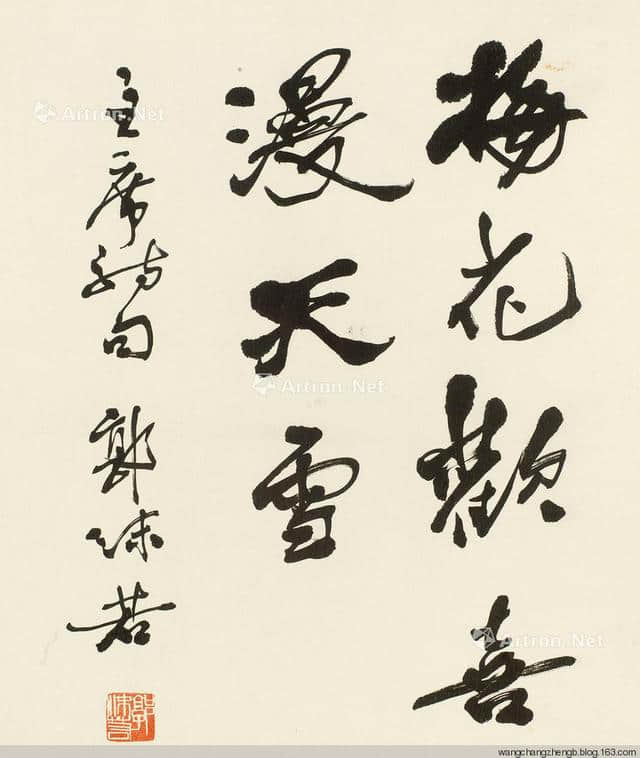 梅花歡喜
漫天雪
主席詩句 郭沫若
郭沫若
Artron.Net
Artron.Net
Artron.Net
wangchangzhengb.blog.163.com